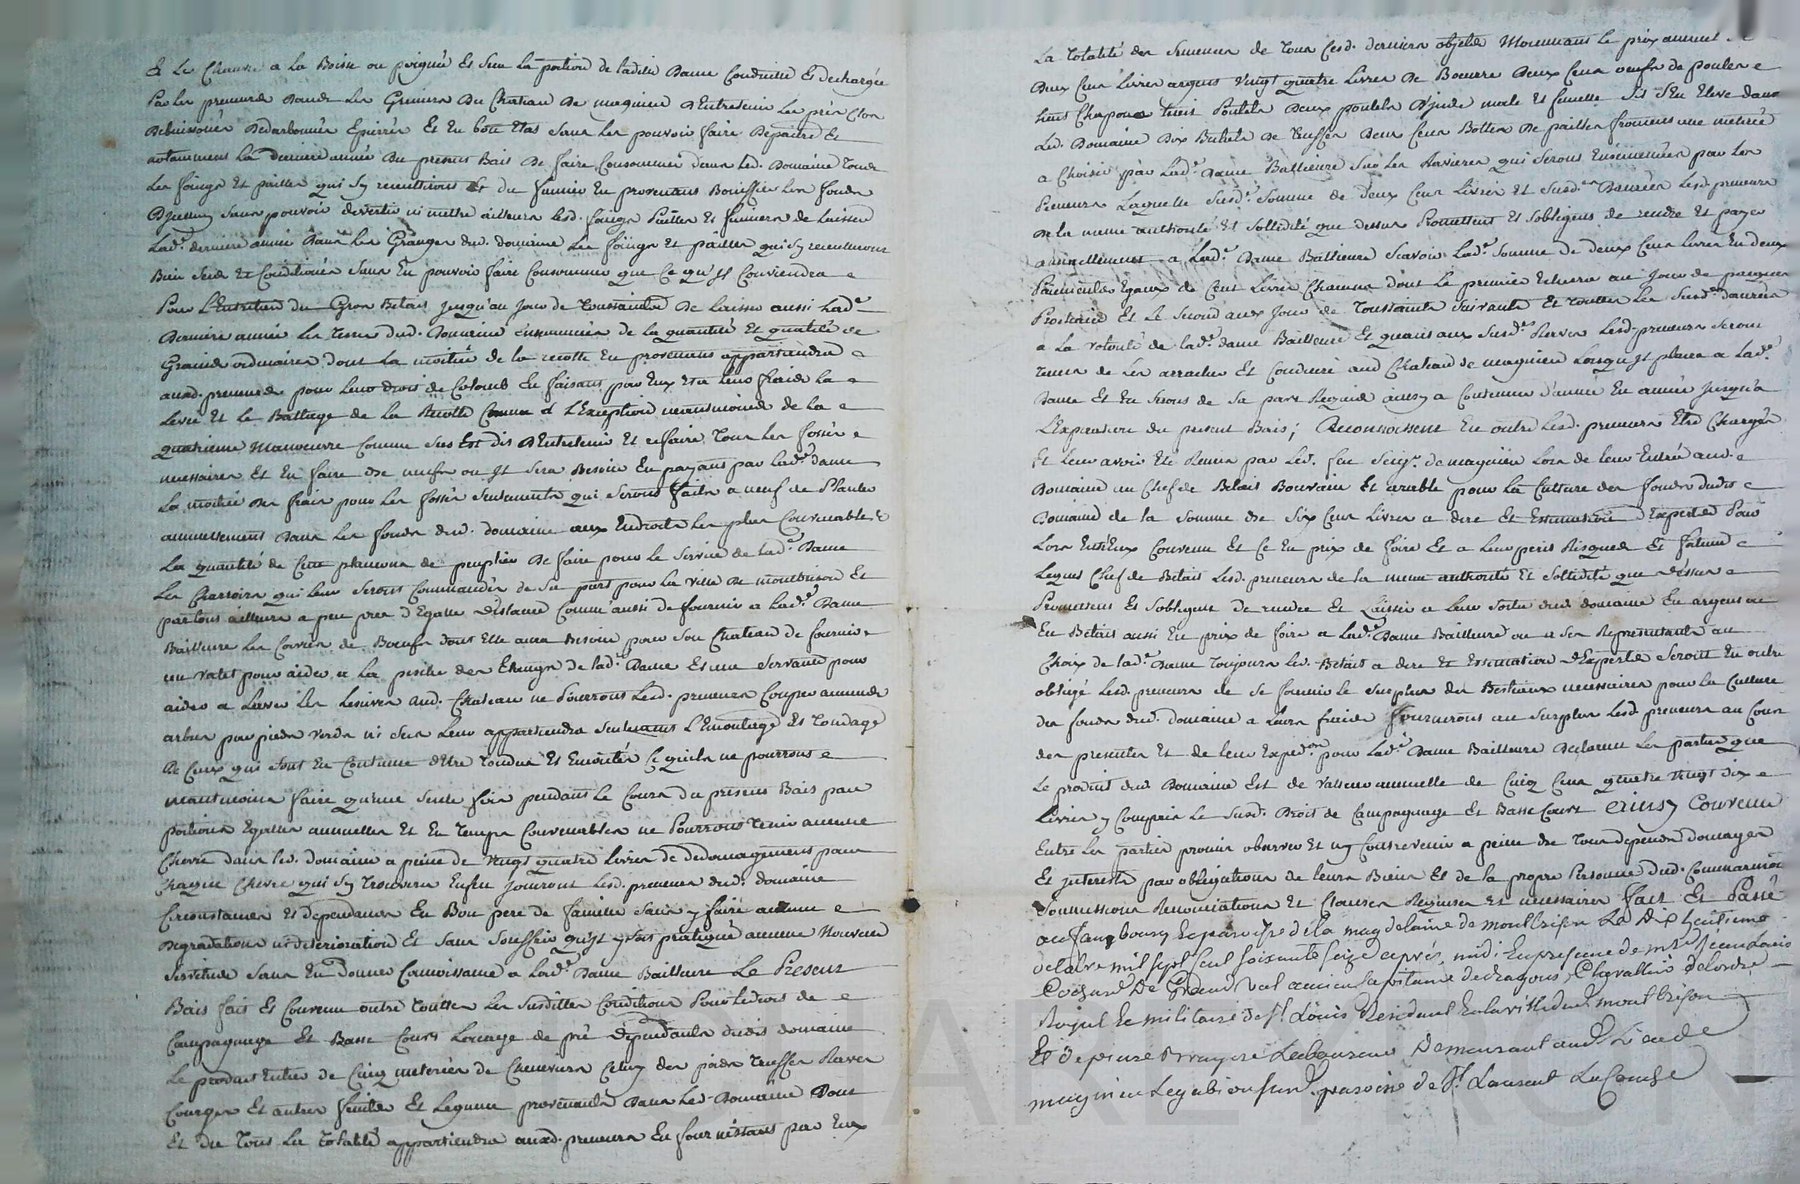 Et Le Chanvre a la Boisse ou poignée Et Sera La portion de ladite Dame Conduitte Et dechargée
Par les preneurs dans Les Greniers du Chateau De magnieu D'Entretenir Les prés Clos
Debuissonés Epierrés Et En bon Etat Sans Les pouvoir faire Depaitre Et
notamment La derniere année du present Bail De faire Consommer dans led. Domaine tous
Les foings Et pailles qui Sy recueilliront Et du fumier En provenant Bonifier Les fonds
D'jceluy Sans pouvoir divertir ni mettre ailleurs lesd. foings Pailles Et fumiers de Laisser
Lad.e derniere année Dans Les Granges dud. domaine Les foings Et pailles qui Sy recueilleront
Bien Secs Et Conditionés Sans En pouvoir faire Consommer que Ce qu'jl Conviendra
Pour L'Entretien du Gros Betail jusqu'au jour de Toussaints De Laisser aussi Lad.e
Derniere année Les terres dud. Domaine Ensemencées de La quantité Et qualité de
Grains ordinaires dont La moitié de la recolte En provenant appartiendra
auxd. preneurs pour leur droit de Colons En faisant par Eux Et a leur fraids La
Levée Et Le Battage de La Recolte Comme a L'Exception neantmoins de La
quatrieme Manoeuvre Comme Sus Est dit D'Entretenir Et refaire Tous Les fossés
necessaires Et En faire de neufs ou jl Sera Besoin En payant par Lad.e dame
La moitié des frais pour Les fossés Seulement qui Seront faits a neuf de Planter
annuellement Dans Les fonds dud. domaine aux Endroits Les plus Convenables
La quantité de Cent plançons de peuplier De faire pour le Service de Lad.e Dame
Les Charrois qui Leur Seront Commandés de Sa part pour La Ville de montbrison Et
partout ailleurs a peu pres d'Egalle distance Comme aussi de fournir a Lad.e Dame
Bailleure Les Corvées de Boeufs dont Elle aura Besoin pour Son Chateau de fournir
un valet pour aider a La pesche des Etangs de lad.e Dame Et une Servante pour
aider a Laver Les Lessives aud. Chateau ne Pourront Lesd. preneurs Couper aucunds
arbres par pieds verds ni Secs Leur appartiendra Seulement L'Emontage Et Tondage
De Ceux qui Sont En Coutume d'Etre Tondus Et Emontés Ce quils ne pourront
neantmoins faire qu'une Seule fois pendant Le Cours du present Bail par
portions Egalles annuelles Et En Temps Convenables ne Pourront Tenir aucune
Chevre dans led. domaine a peine de Vingt quatre Livres de Dedomagement pour
Chaque Chevre qui Sy trouvera Enfin jouiront Lesd. preneurs dud. domaine
Circonstances Et dependances En Bon pere de famille Sans y faire aucune
Degradation ni deterioration Et Sans Souffrir qu'jl y Soit pratiqué aucune Nouvelle
Servitude Sans En donner Connoissance a Lad.e Dame Bailleure Le Present
Bail fait Et Convenu outre toutes Les Susdittes Conditions Pour Le droit de
Campagnage Et Basse Cour de pré dependants dudit domaine
Le produit Entier de Cinq meterées de Cheneviere Celuy des pois Truffes Raves
Courges Et autres fruits Et Legume provenants Dans Led. Domaine Dont
Et du Tout La Totalité appartiendra auxd. preneurs En fournissant par Eux
La Totalité des Semences de Tous Cesd. derniers objets Moyennant Le prix annuel de
Deux Cent Livres argent Vingt quatre Livres De Beurre Deux Cent oeufs de poules
huit Chapons huit Poulets Deux poulets D'jnde male Et femelle S'il S'En Eleve dans
Led. Domaine Dix Bichets De Truffes Deux Cent Bottes De pailles froment une meterée
a Choisir par Lad.e Dame Bailleure Sur Les Ravieres qui Seront Ensemencées par les
Preneurs Laquelle Susd.e Somme de deux Cent Livres Et Susd.es Danrées Lesd. preneurs
De La meme authorité Et Sollidité que dessus Promettent Et S'obligent de rendre Et payer
annuellement a Lad.e Dame Bailleure Scavoir Lad.e Somme de deux Cent Livres En deux
Paiements Egaux de Cent Livres Chacun dont Le premier Echerra au Jour de pasques
Prochain Et Le Second aux jour de Toussaints Suivants Et Toutes Les Susd.es danrées
a La volonté de lad.e dame Bailleure Et quant aux Susd.es Raves Lesd. preneurs Seront
tenus de Les arracher Et Conduire aud Chateau de magnieu Lorsqu'jl plaira a Lad.e
Dame Et En Seront de Sa part Requis ainsy a Continuer d'année En année jusqu'a
L'Expiration du present Bail; Reconnoissent En outre Lesd. preneurs Etre Chargés
Et Leur avoir Eté Remis par Led. feu Seig.r de magnieu Lors de leur Entrée aud.
Domaine un Chef de Betail Bouvain Et arable pour La Culture des fonds dudit
Domaine de la Somme de Six Cent Livres a dire Et Estimation D'Experts Pour
Lors Entr'Eux Convenu Et Ce En prix de foire Et a Leur peril Risques Et fortune
Lequel Chef de Betail Lesd. preneurs de la meme authorité Et Sollidité que dessus
Promettent Et S'obligent de rendre Et Laisser a leur Sortie dud domaine En argent ou
En Betail aussi En prix de foire a Lad.e Dame Bailleure ou a Ses Representants au
Choix de lad.e Dame Toujours Led. Betail a dire Et Estimation d'Experts Seront En outre
obligé Lesd. preneurs de Se fournir le Surplus des Bestiaux necessaires pour La Culture
des fonds dud. domaine a Leurs fraids fourniront au Surplus Lesd. preneurs au Cout
des presentes Et de leur Exped.on pour Lad.e Dame Bailleure Declarent Les parties que
Le produit dud Domaine Est de Valleur annuelle de Cinq Cent quatre Vingt dix
Livres y Compris Le Susd. Droit de Campagnage Et Basse Cour ainsy Convenu
Entre Les parties promis observer Et ny Contrevenir a peine de Tous depends domages
Et jnterests par obligations de leurs Biens Et de la propre Personne dud.
Soumissions Renonciations Et Clauses Requises Et necessaires fait Et Passé
au fauxbourg Et paroisse de la magdelaine de montbrison Le dix huitieme
mil sept cent soixante seize apres midi En presence de m.re Jean Louis
ancien capitaine de dragons, Chevallier de Lordre
Royal Et militaire de St. Loüis Residant En la ville dud. montbrison
Et de pierre Bruyere Laboureur Demeurant aud. Lieu de
magnieu Le gabion susd. paroisse de St. Laurent La Conche